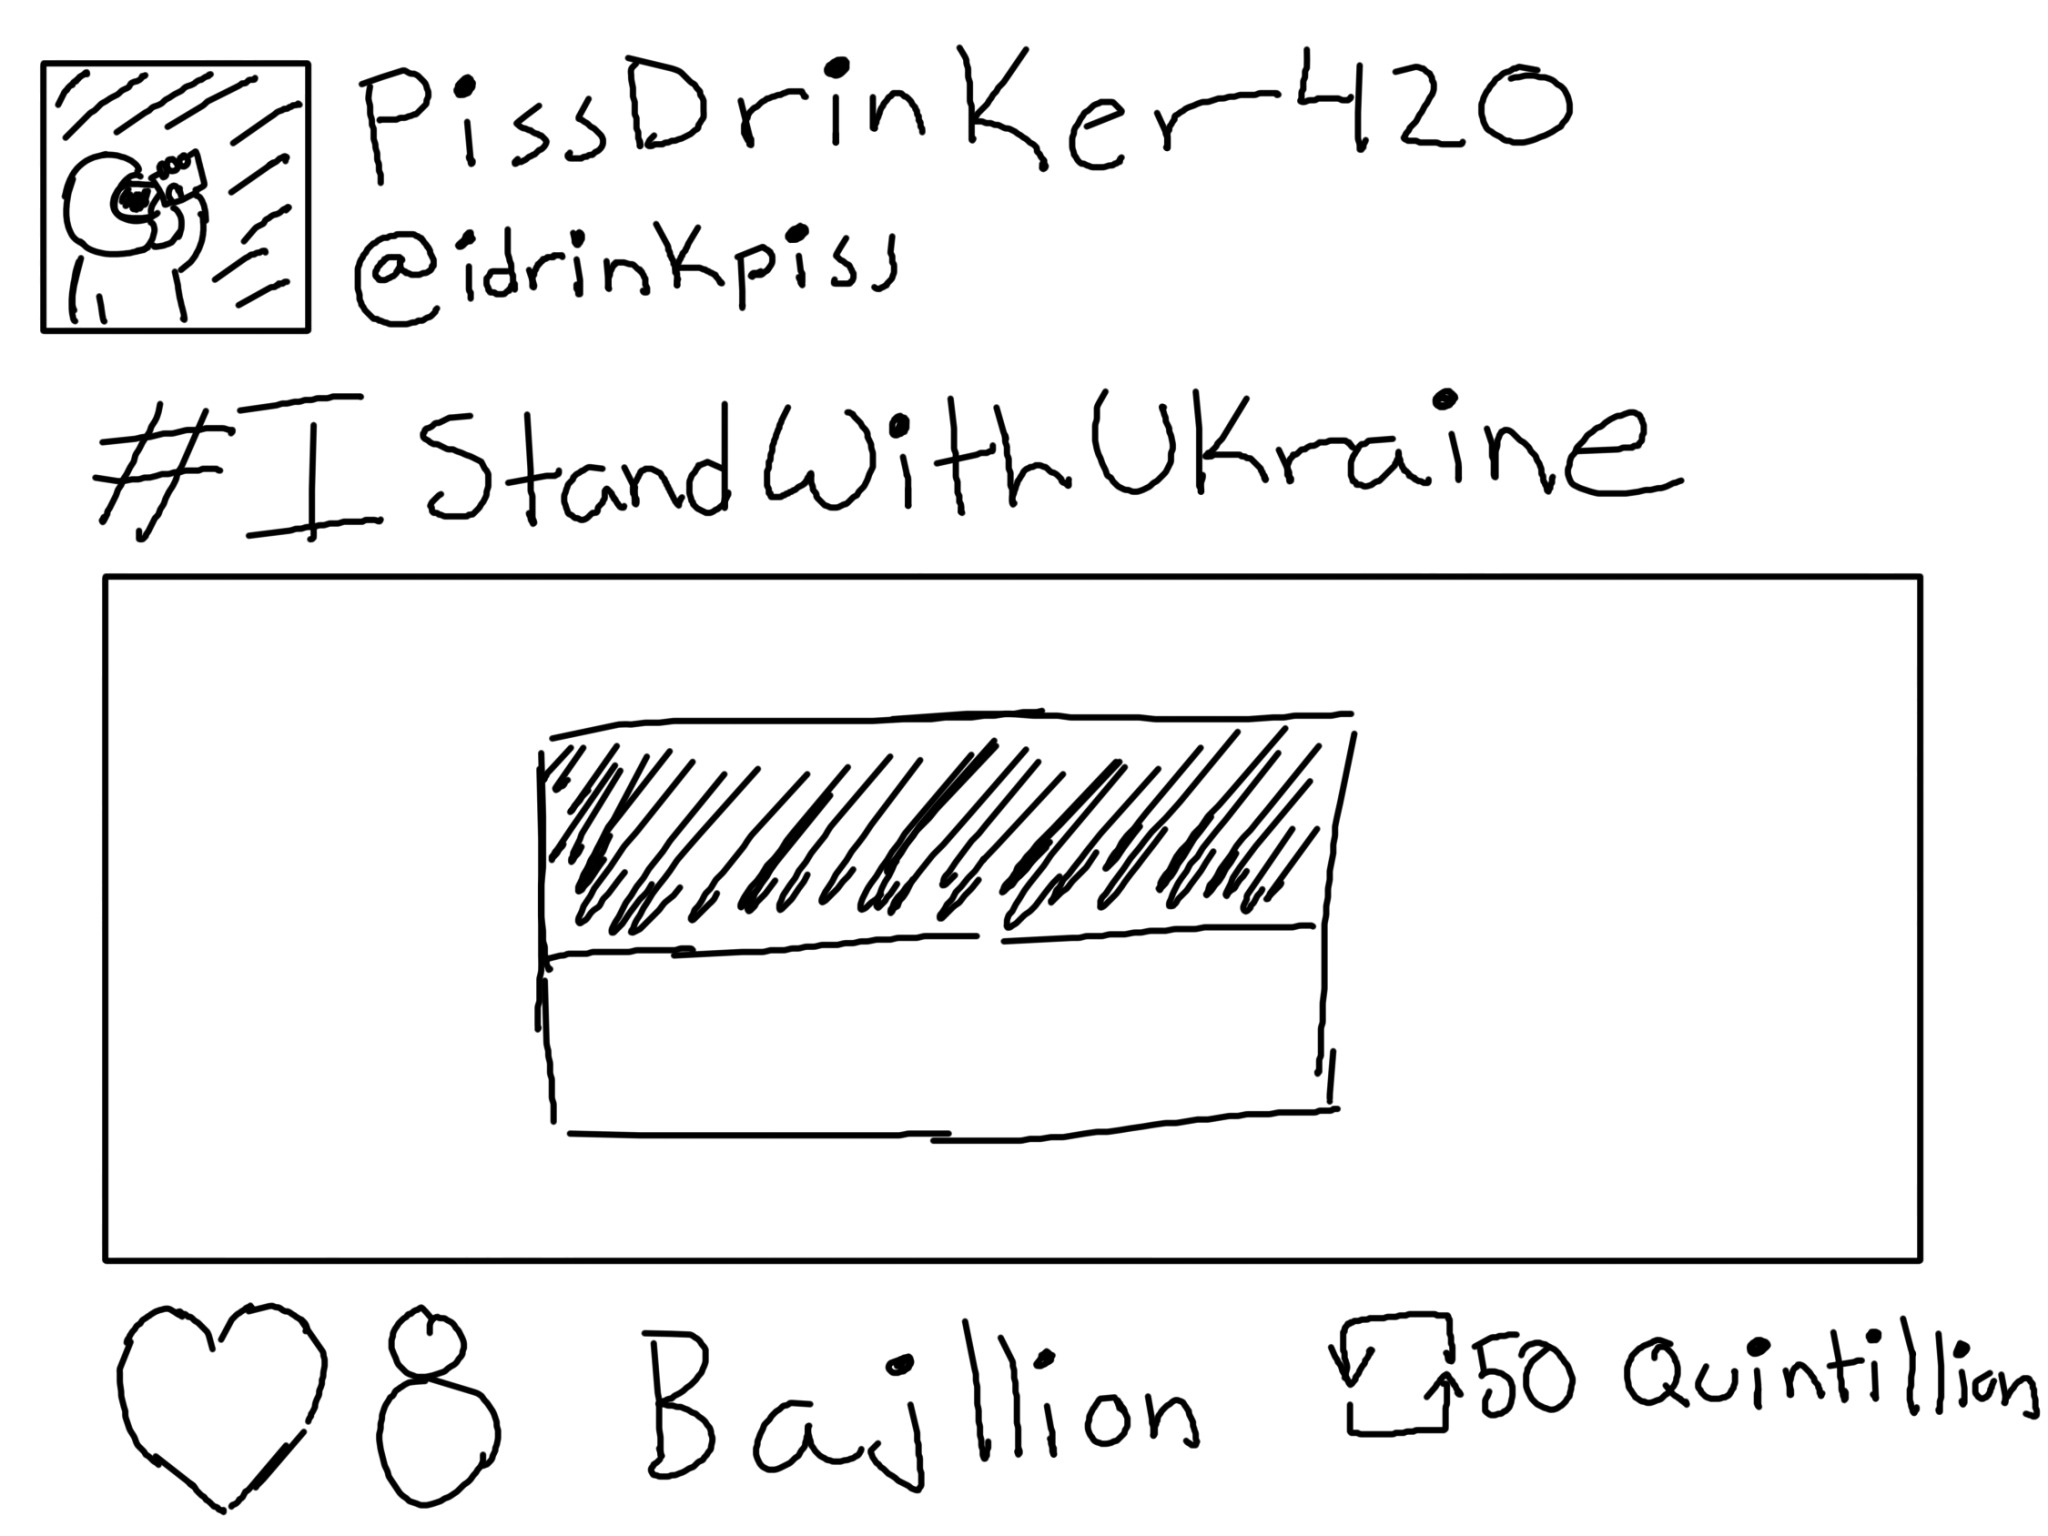 PissDrinKer420
@idrinKpiss
#IStandWithUKraine
8 Bajllion
50 Quintillion